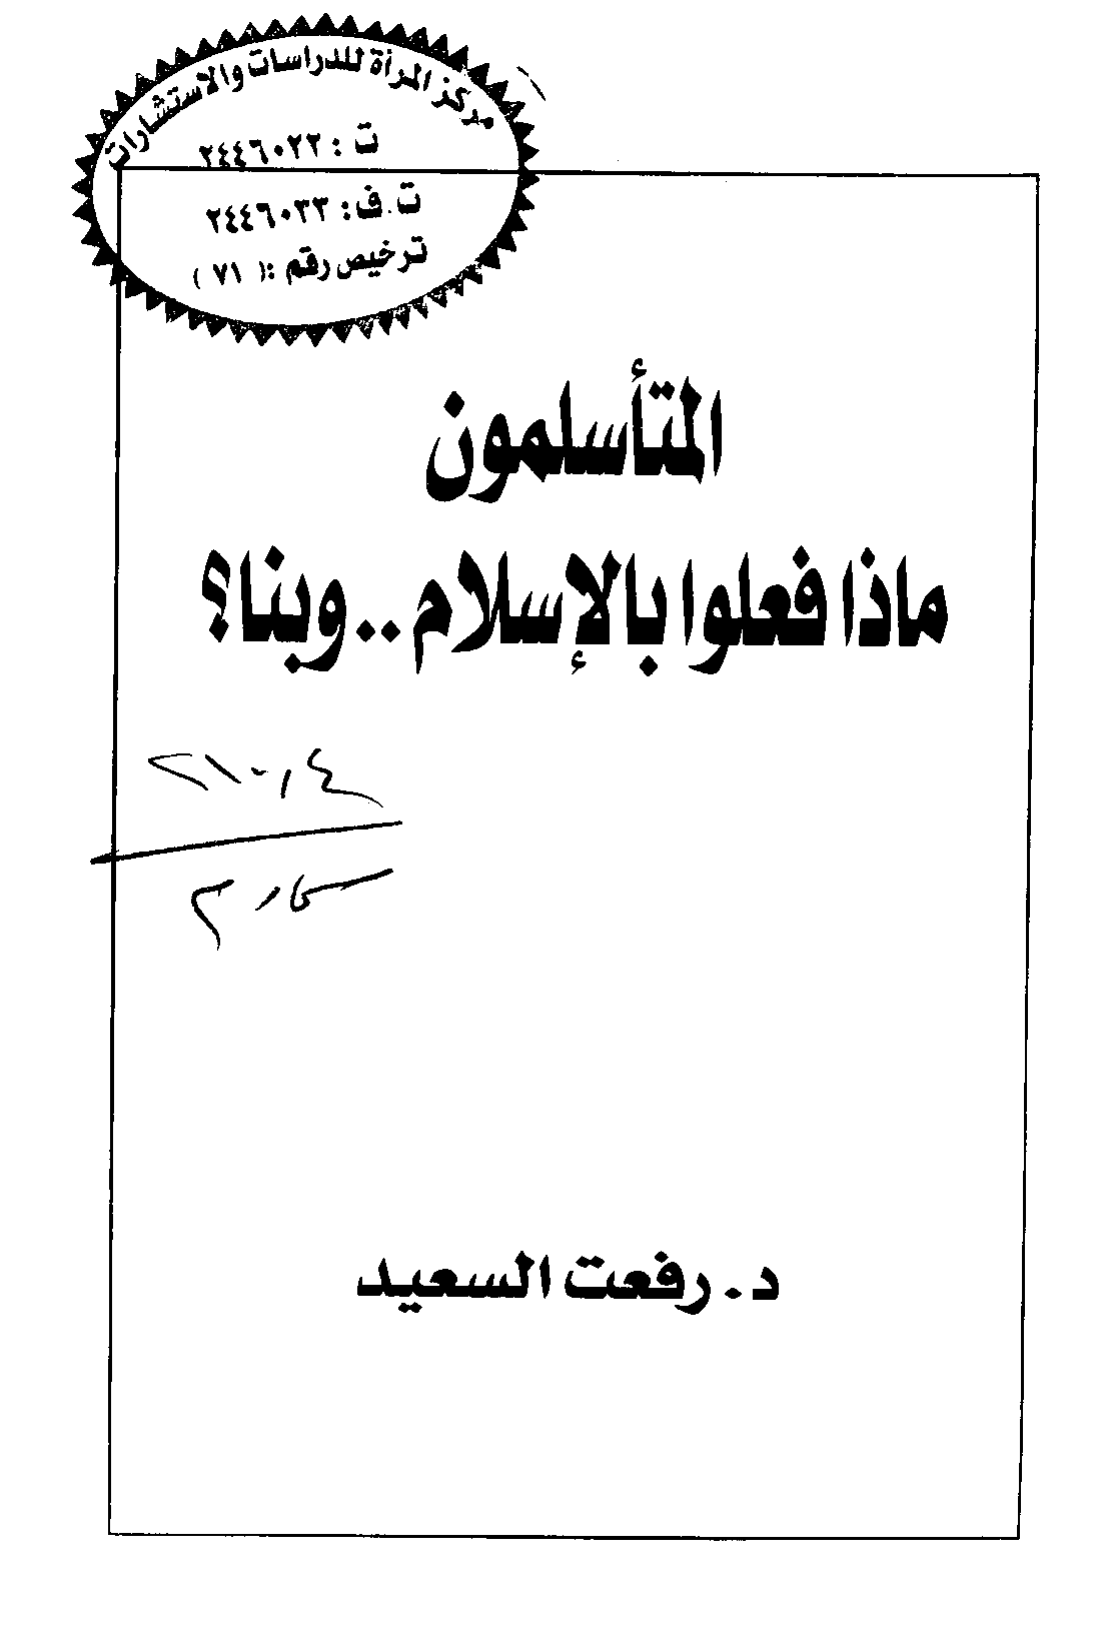 مركز المرأة للدراسات والاستشارات
ت : ٢٤٤٦٠٢٢
ت.ف: ٢٤٤٦٠٣٣
ترخيص رقم :( ٧١ )
المتأسلمون
ماذا فعلوا بالإسلام..وبنا؟
د. رفعت السعيد